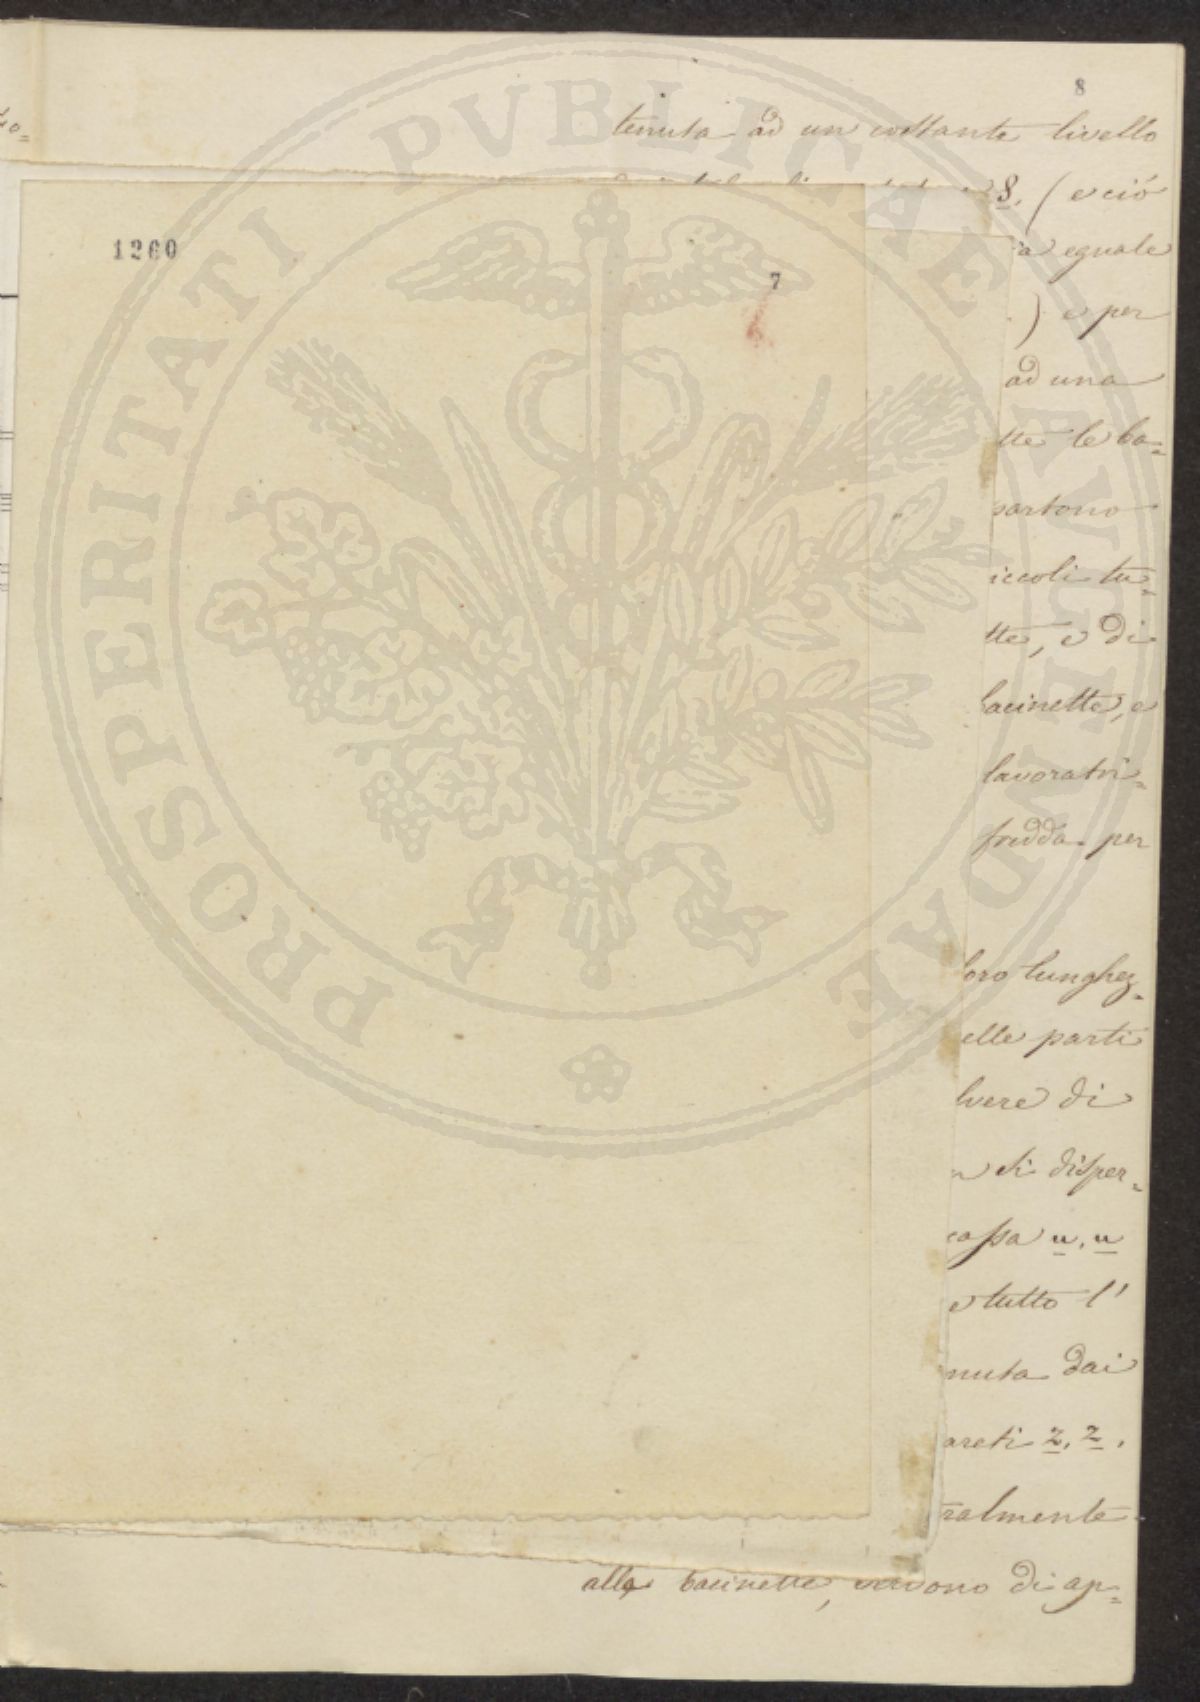 8
tenuta ad un costante livello
8, (e ciò
1260
a eguale
7
) e per
ad una
tte le ba=
partono
iccoli tu=
tte, e di
bacinette, e
lavoratri=
fredda per
loro lunghez=
elle parti
lvere di
si disper=
cassa u, u
e tutto l'
nuta dai
areti z, z,
ralmente
alle bacinette, servono di ap=
PROSPERITATI PVBLICAE AVGENDAE